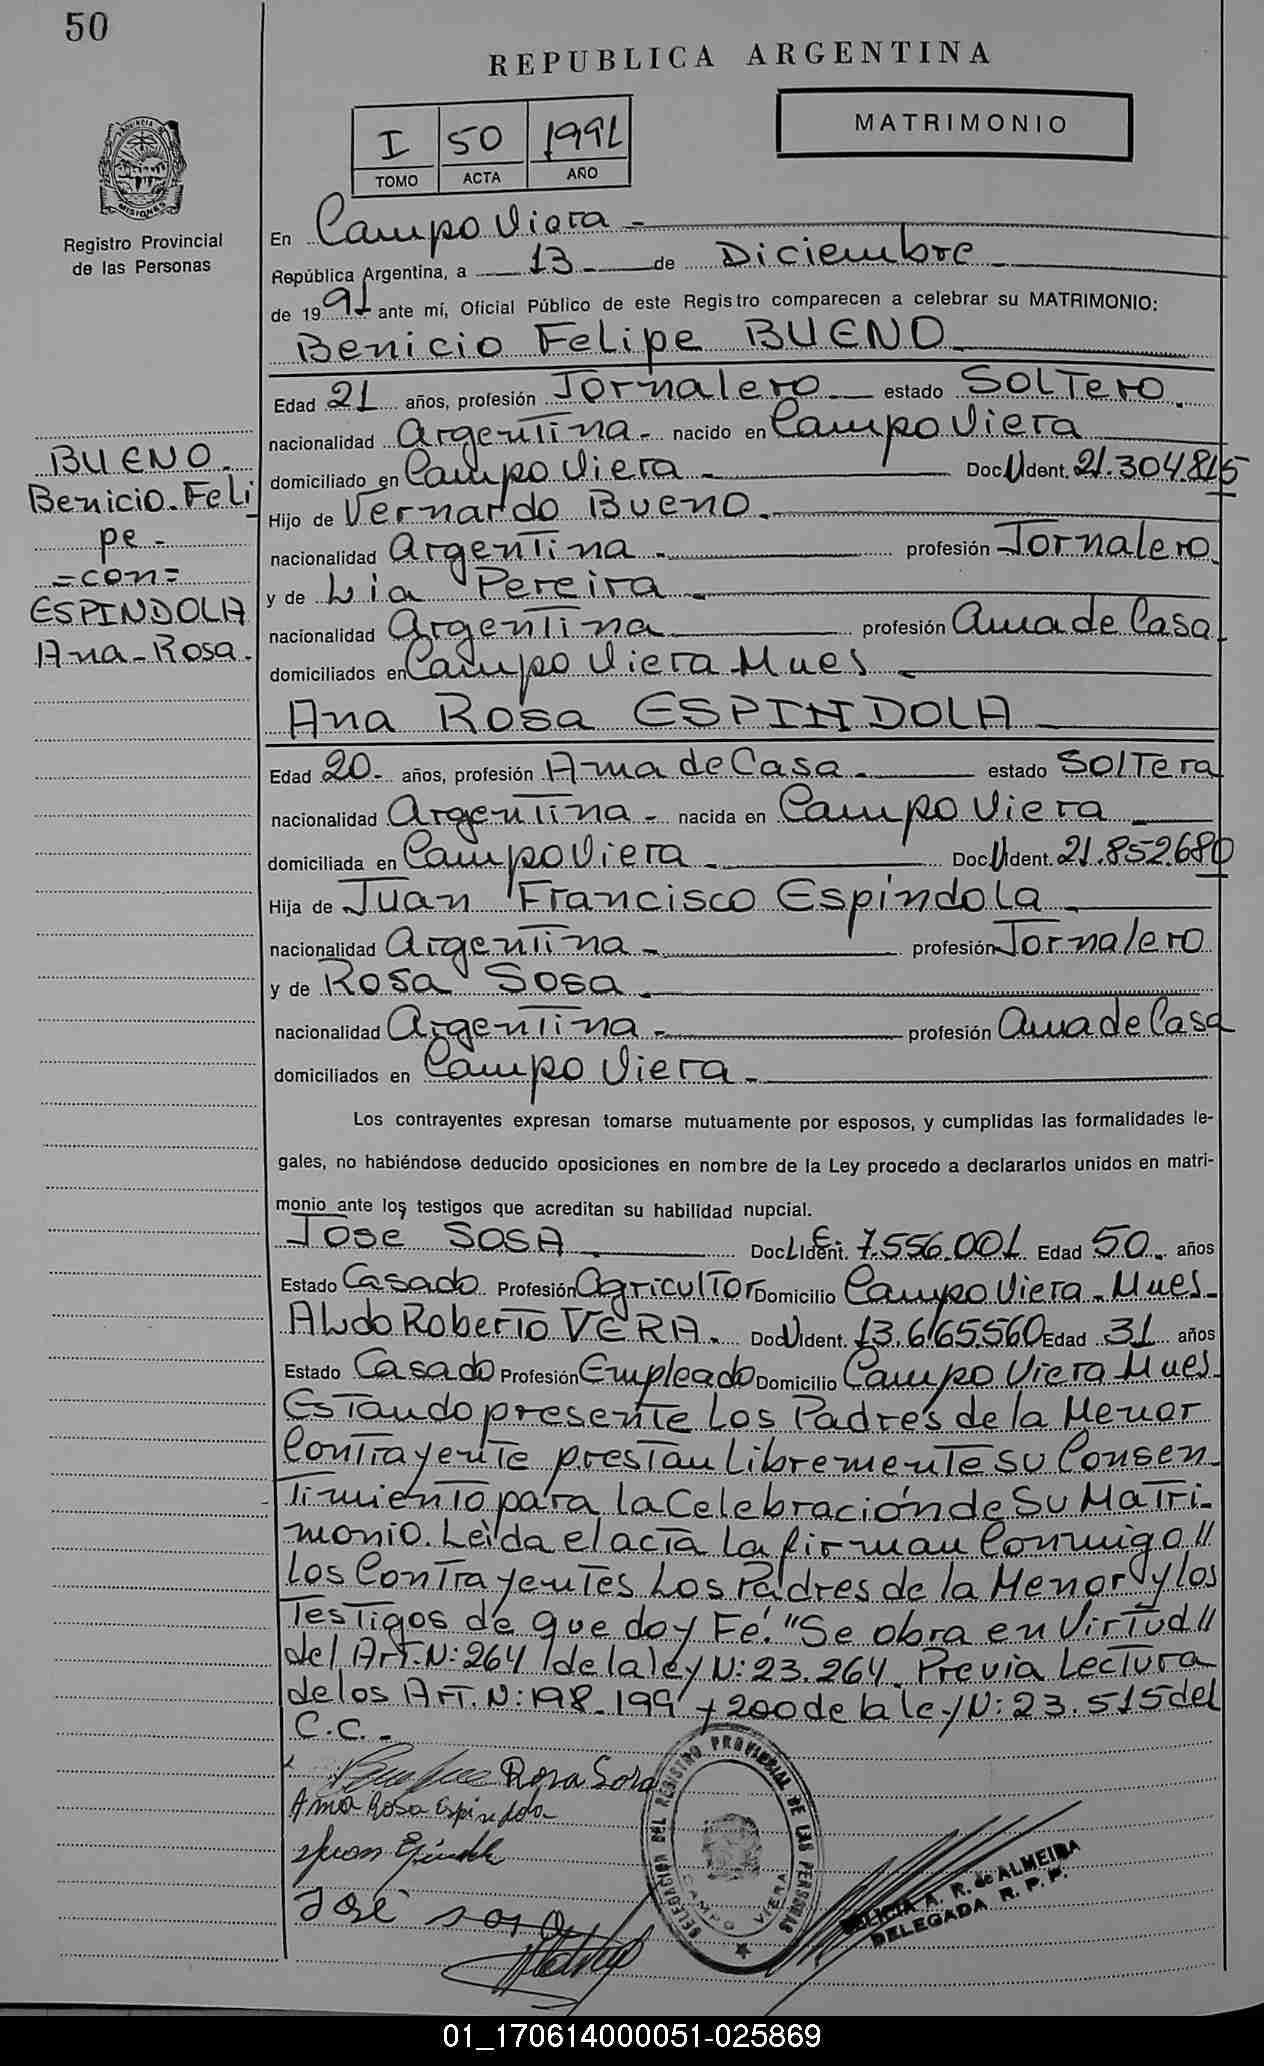 50
REPUBLICA ARGENTINA
MATRIMONIO
I 50 1991
TOMO ACTA AÑO
PROVINCIA
MISIONES
Registro Provincial
de las Personas
En Campo Viera -
República Argentina, a 13 de Diciembre
de 1991 ante mí, Oficial Público de este Registro comparecen a celebrar su MATRIMONIO:
Benicio Felipe BUENO
Edad 21 años, profesión Jornalero estado SOLTero.
nacionalidad Argentina - nacido en Campo Viera
domiciliado en Campo Viera - Doc U Ident. 21.304.815
Hijo de Vernardo Bueno.
nacionalidad Argentina - profesión Jornalero
y de Lia Pereira
nacionalidad Argentina profesión Ama de Casa
domiciliados en Campo Viera Mnes -
BUENO.
Benicio-Feli
pe -
=con=
ESPINDOLA
Ana-Rosa.
Ana Rosa ESPINDOLA
Edad 20- años, profesión Ama de Casa. estado SOlTera
nacionalidad Argentina - nacida en Campo Viera
domiciliada en Campo Viera - Doc U Ident. 21.852.680
Hija de Juan Francisco Espíndola
nacionalidad Argentina - profesión Jornalero
y de Rosa Sosa
nacionalidad Argentina - profesión Ama de Casa
domiciliados en Campo Viera -
Los contrayentes expresan tomarse mutuamente por esposos, y cumplidas las formalidades le-
gales, no habiéndose deducido oposiciones en nombre de la Ley procedo a declararlos unidos en matri-
monio ante los testigos que acreditan su habilidad nupcial.
Jose SOSA Doc L.E. Ident. 7.556.001 Edad 50 años
Estado Casado Profesión Agricultor Domicilio Campo Viera - Mnes -
Aldo Roberto VERA. Doc U Ident. 13.665.560 Edad 31 años
Estado Casado Profesión Empleado Domicilio Campo Viera Mnes
Estando presente Los Padres de la Menor
Contrayente prestan Libremente su Consen
Timiento para la Celebración de Su Matri-
monio. Leìda el acta La firman Conmigo //
Los Contrayentes Los Padres de la Menor y los
Testigos de que doy Fé. "Se obra en Virtud //
del Art. N: 264 de la ley N: 23.264. Previa Lectura
de los Art. N: 198-199 y 200 de la ley N: 23.515 del
C.C. -
Rosa Sosa
Ana Rosa Espindola
Juan Espindola
José sosa
DELEGACION DEL REGISTRO PROVINCIAL DE LAS PERSONAS
CAMPO VIERA
A. R. de ALMEIRA
DELEGADA R. P. P.
01_170614000051-025869